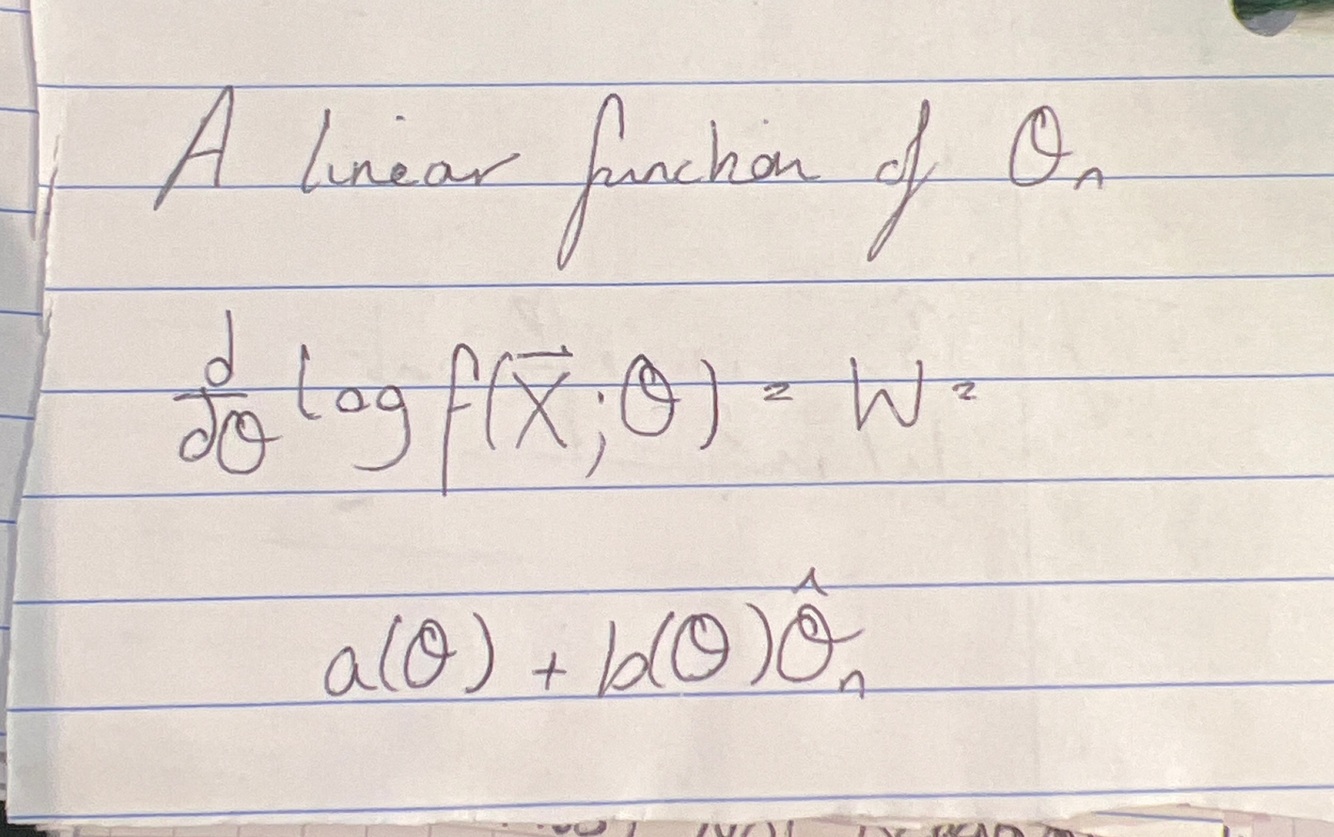 A linear function of θn
d/dθ log f(X⃗;θ) = W =
a(θ) + b(θ)θ̂n